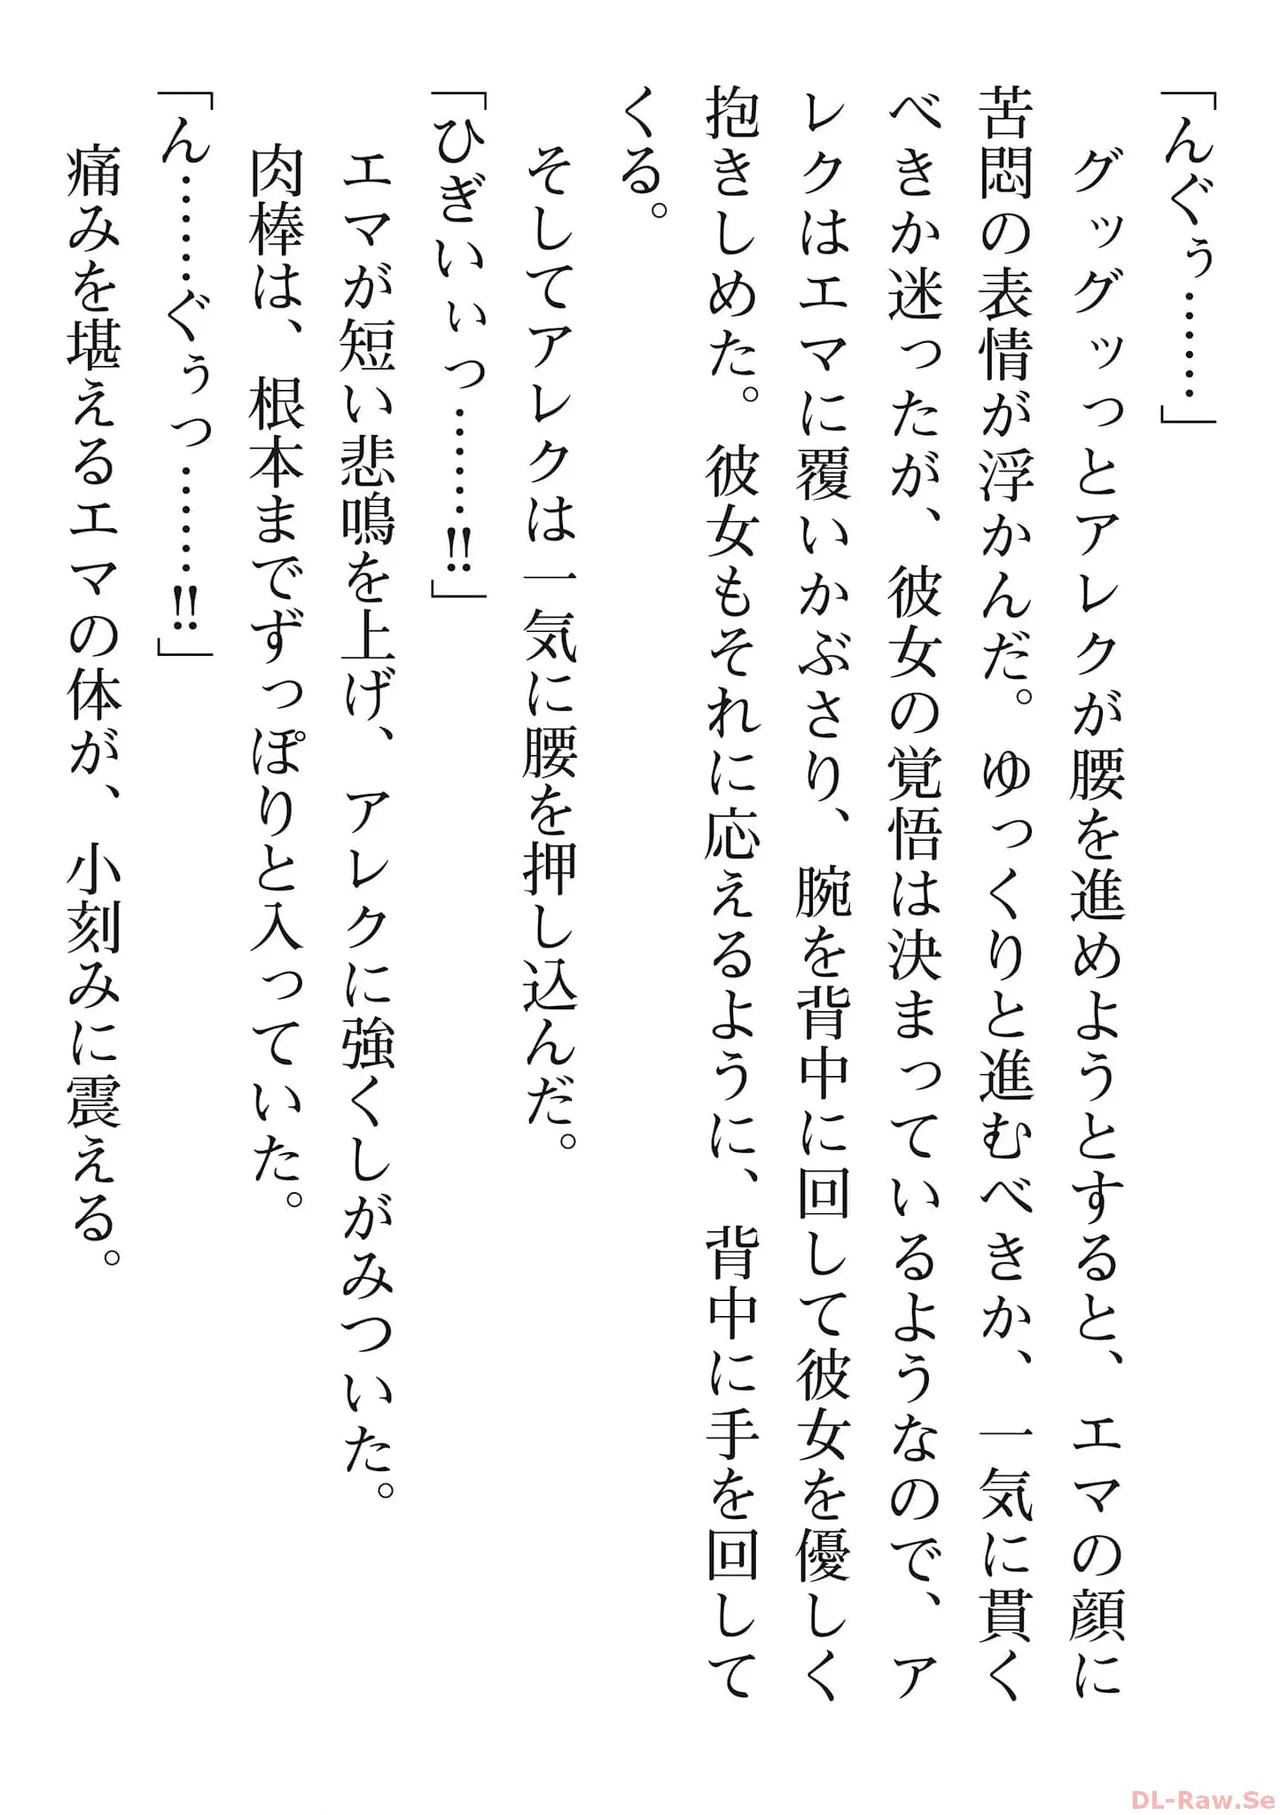 「んぐぅ……」
　グッグッっとアレクが腰を進めようとすると、エマの顔に
苦悶の表情が浮かんだ。ゆっくりと進むべきか、一気に貫く
べきか迷ったが、彼女の覚悟は決まっているようなので、ア
レクはエマに覆いかぶさり、腕を背中に回して彼女を優しく
抱きしめた。彼女もそれに応えるように、背中に手を回して
くる。
　そしてアレクは一気に腰を押し込んだ。
「ひぎいぃっ……‼」
　エマが短い悲鳴を上げ、アレクに強くしがみついた。
　肉棒は、根本までずっぽりと入っていた。
「ん……ぐぅっ……‼」
　痛みを堪えるエマの体が、小刻みに震える。
DL-Raw.Se